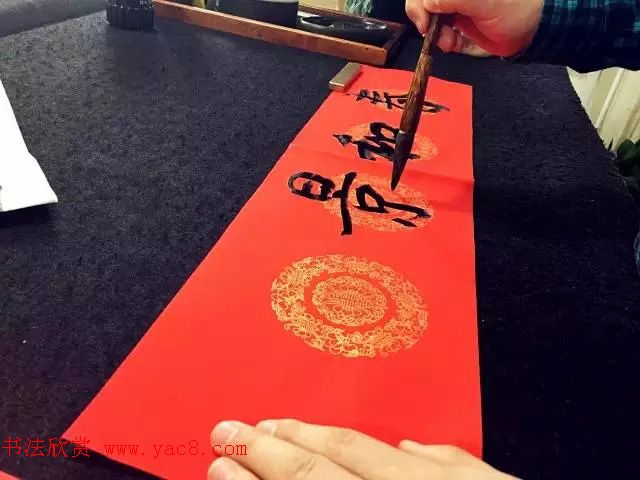 春和景
书法欣赏-www.yac8.com